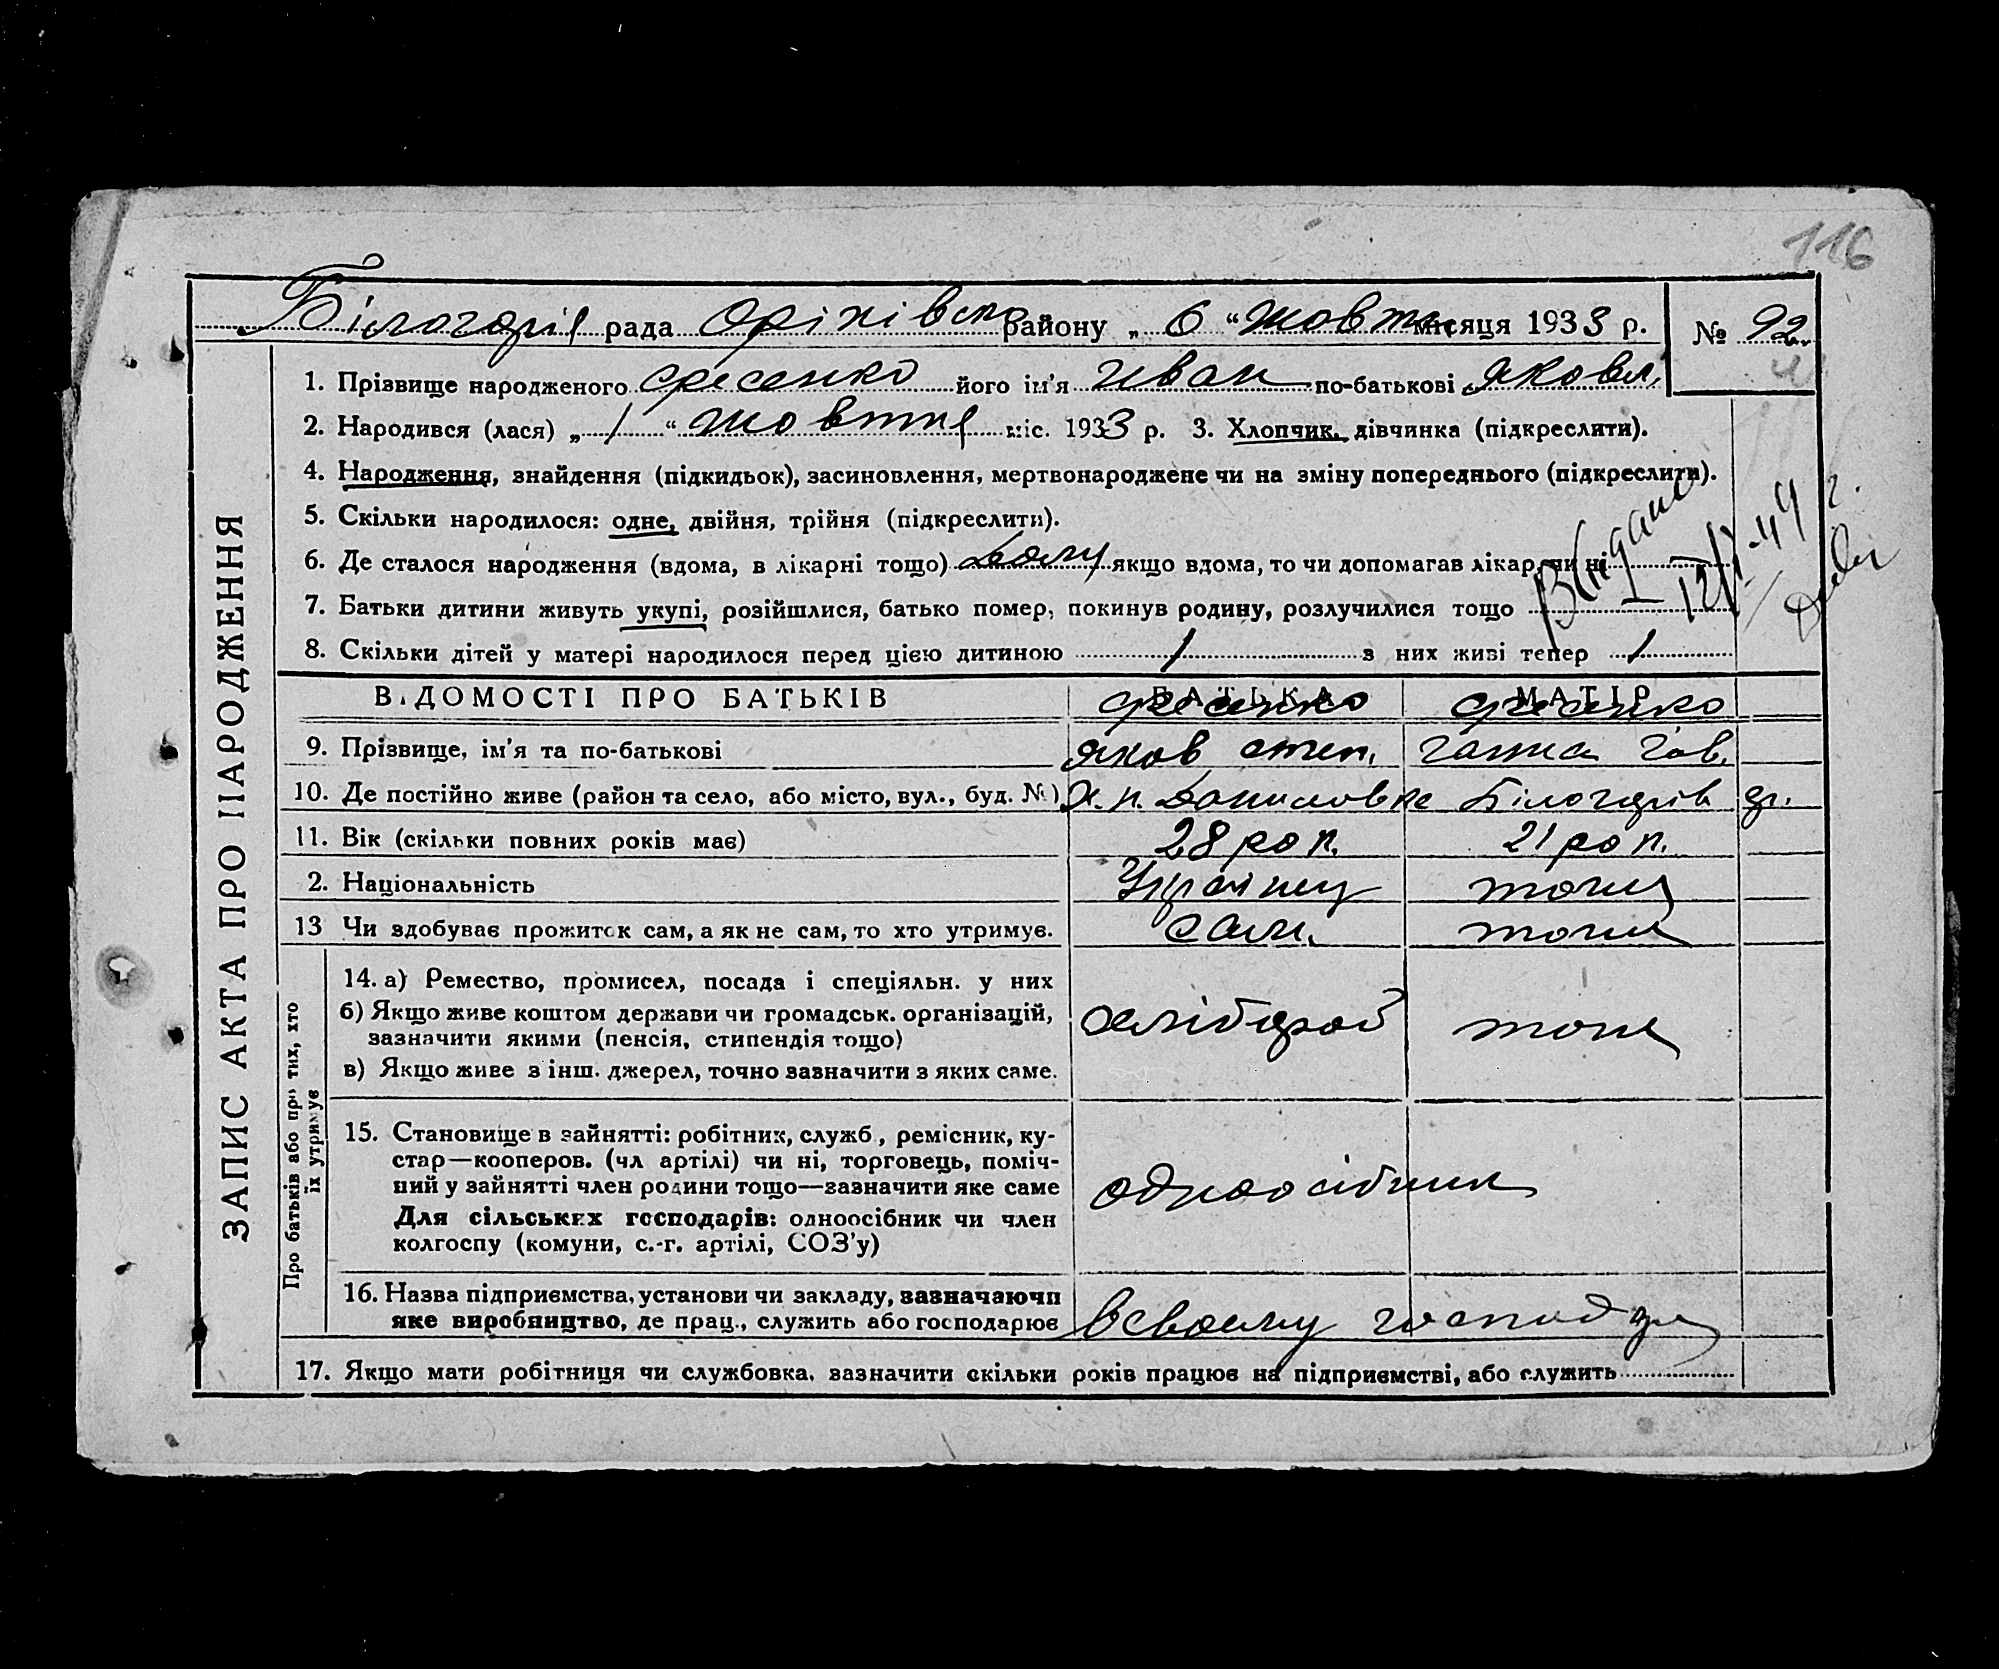 116
Білогорія рада Оріхівско району „ 6 “ Жовтн місяця 1933 р. № 92.
1. Прізвище народженого Фесенко його ім'я Иван по-батькові Яковл.
2. Народився (лася) „ 1 “ Жовтня міс. 1933 р. 3. Хлопчик, дівчинка (підкреслити).
4. Народження, знайдення (підкидьок), засиновлення, мертвонароджене чи на зміну попереднього (підкреслити).
5. Скільки народилося: одне, двійня, трійня (підкреслити).
6. Де сталося народження (вдома, в лікарні тощо) Дому якщо вдома, то чи допомагав лікар, чи ні
7. Батьки дитини живуть укупі, розійшлися, батько помер, покинув родину, розлучилися тощо
8. Скільки дітей у матері народилося перед цією дитиною 1 з них живі тепер 1
ВІДОМОСТІ ПРО БАТЬКІВ БАТЬКА МАТІР
Фесенко Фесенко
9. Прізвище, ім'я та по-батькові Яков степ. Ганна Гав.
10. Де постійно живе (район та село, або місто, вул., буд. №) Х. п. Даниловке Білогорів
11. Вік (скільки повних років має) 28 рок. 21 рок.
2. Національність Украінец тоже
13 Чи здобуває прожиток сам, а як не сам, то хто утримує. сам. тоже
14. а) Ремество, промисел, посада і спеціяльн. у них
б) Якщо живе коштом держави чи громадськ. організацій, зазначити якими (пенсія, стипендія тощо) хлібороб тоже
в) Якщо живе з інш. джерел, точно зазначити з яких саме.
15. Становище в зайнятті: робітник, служб, ремісник, ку-
стар—кооперов. (чл артілі) чи ні, торговець, поміч-
ний у зайнятті член родини тощо—зазначити яке саме одноосібник
Для сільських господарів: одноосібник чи член
колгоспу (комуни, с.-г. артілі, СОЗ'у)
16. Назва підприємства, установи чи закладу, зазначаючи
яке виробництво, де прац., служить або господарює в своему господар
17. Якщо мати робітниця чи службовка, зазначити скільки років працює на підприємстві, або служить
ЗАПИС АКТА ПРО НАРОДЖЕННЯ
Про батьків або про тих, хто
їх утримує